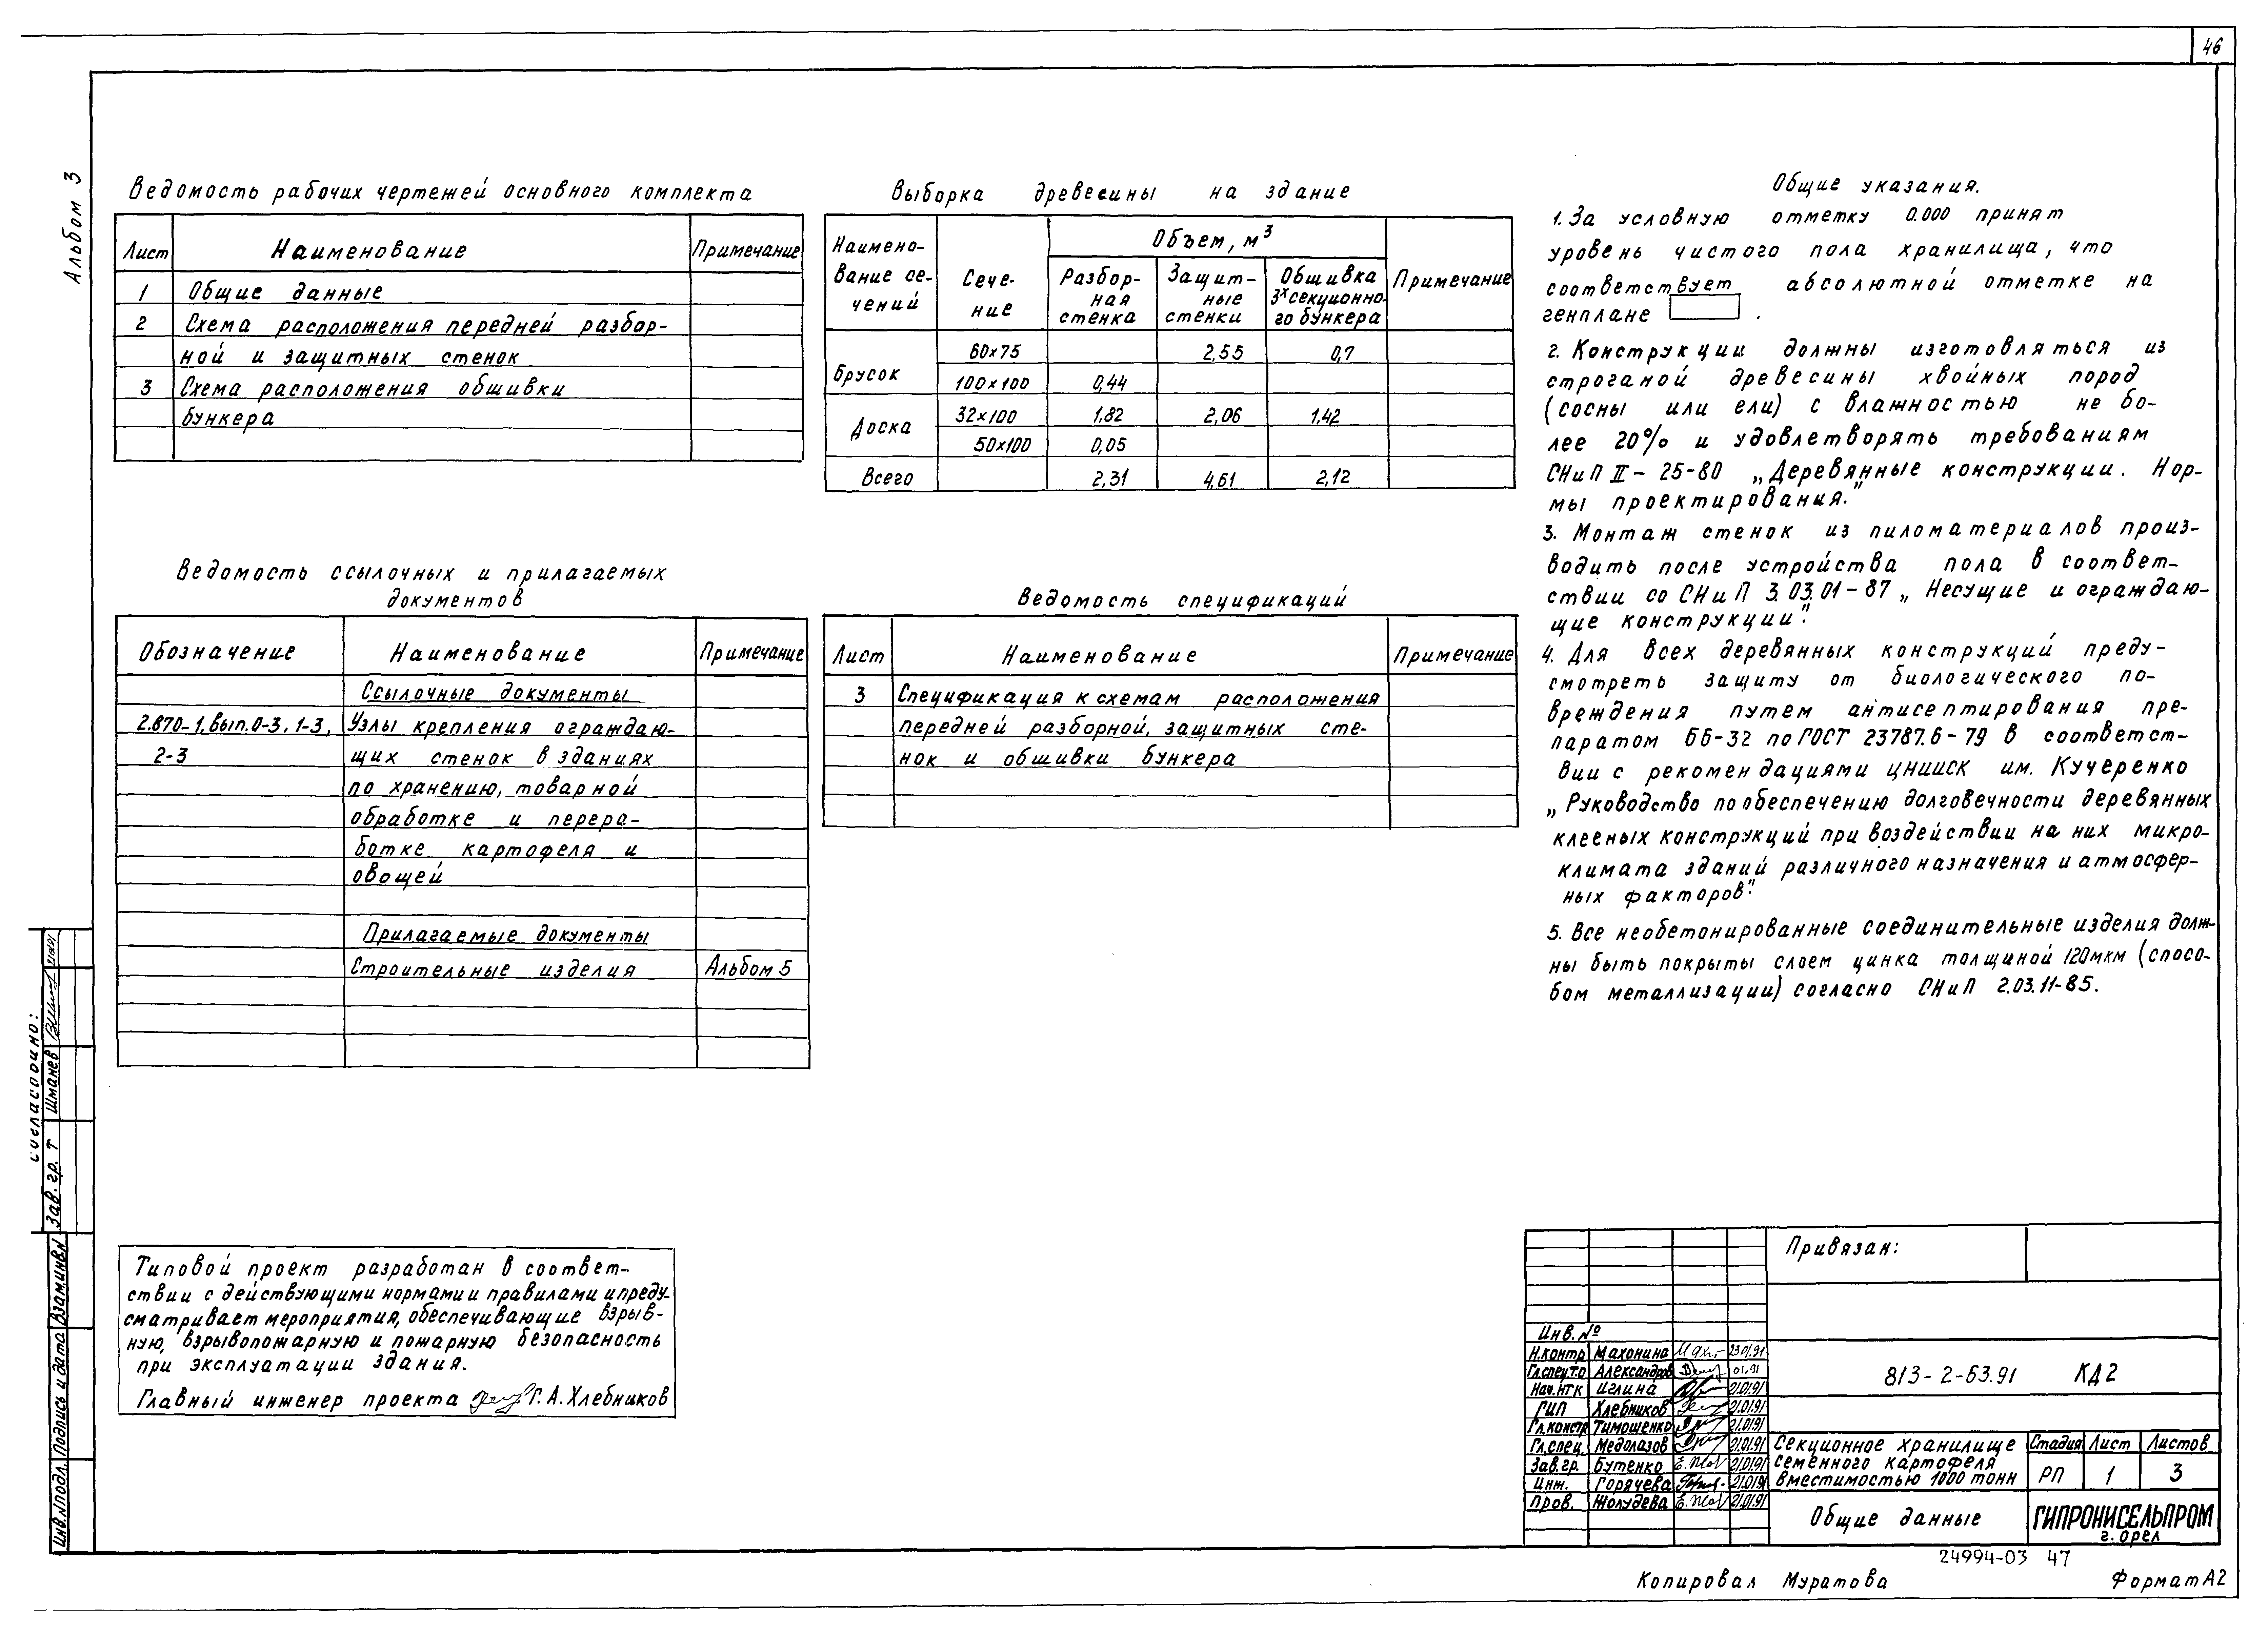 46
Альбом 3
Ведомость рабочих чертежей основного комплекта
Лист Наименование Примечание
1 Общие данные
2 Схема расположения передней разбор-
ной и защитных стенок
3 Схема расположения обшивки
бункера
Выборка древесины на здание
Наимено-
вание се-
чений
Сече-
ние
Объем, м3
Разбор-
ная
стенка
Защит-
ные
стенки
Обшивка
3х секционно-
го бункера
Примечание
Брусок 60х75 2,55 0,7
100х100 0,44
Доска 32х100 1,82 2,06 1,42
50х100 0,05
Всего 2,31 4,61 2,12
Ведомость ссылочных и прилагаемых
документов
Обозначение Наименование Примечание
Ссылочные документы
2.870-1, вып.0-3, 1-3, Узлы крепления ограждаю-
2-3 щих стенок в зданиях
по хранению, товарной
обработке и перера-
ботке картофеля и
овощей
Прилагаемые документы
Строительные изделия Альбом 5
Ведомость спецификаций
Лист Наименование Примечание
3 Спецификация к схемам расположения
передней разборной, защитных сте-
нок и обшивки бункера
Общие указания.
1. За условную отметку 0.000 принят
уровень чистого пола хранилища, что
соответствует абсолютной отметке на
генплане .
2. Конструкции должны изготовляться из
строганой древесины хвойных пород
(сосны или ели) с влажностью не бо-
лее 20% и удовлетворять требованиям
СНиП II-25-80 „Деревянные конструкции. Нор-
мы проектирования."
3. Монтаж стенок из пиломатериалов произ-
водить после устройства пола в соответ-
ствии со СНиП 3.03.01-87 „Несущие и ограждаю-
щие конструкции".
4. Для всех деревянных конструкций преду-
смотреть защиту от биологического по-
вреждения путем антисептирования пре-
паратом ББ-32 по ГОСТ 23787.6-79 в соответст-
вии с рекомендациями ЦНИИСК им. Кучеренко
„Руководство по обеспечению долговечности деревянных
клееных конструкций при воздействии на них микро-
климата зданий различного назначения и атмосфер-
ных факторов".
5. Все необетонированные соединительные изделия долж-
ны быть покрыты слоем цинка толщиной 120мкм (спосо-
бом металлизации) согласно СНиП 2.03.11-85.
Согласовано:
Зав. гр. Т Шманев 21.01.91
Инв.№подл. Подпись и дата Взам.инв.№
Типовой проект разработан в соответ-
ствии с действующими нормами и правилами и преду-
сматривает мероприятия, обеспечивающие взрыв-
ную, взрывопожарную и пожарную безопасность
при эксплуатации здания.
Главный инженер проекта Г. А. Хлебников
Привязан:
Инв. №
Н.контр Махонина 23.01.91
Гл.спец.т.о Александров 01.91
Нач. НТК Иглина 21.01.91
ГИП Хлебников 21.01.91
Гл.констр Тимошенко 21.01.91
Гл.спец. Медолазов 21.01.91
Зав.гр. Бутенко 21.01.91
Инж. Горячева 21.01.91
Пров. Жолудева 21.01.91
813-2-63.91 КД2
Секционное хранилище
семенного картофеля
вместимостью 1000 тонн
Стадия Лист Листов
РП 1 3
Общие данные
ГИПРОНИСЕЛЬПРОМ
г. Орел
24994-03 47
Копировал Муратова Формат А2